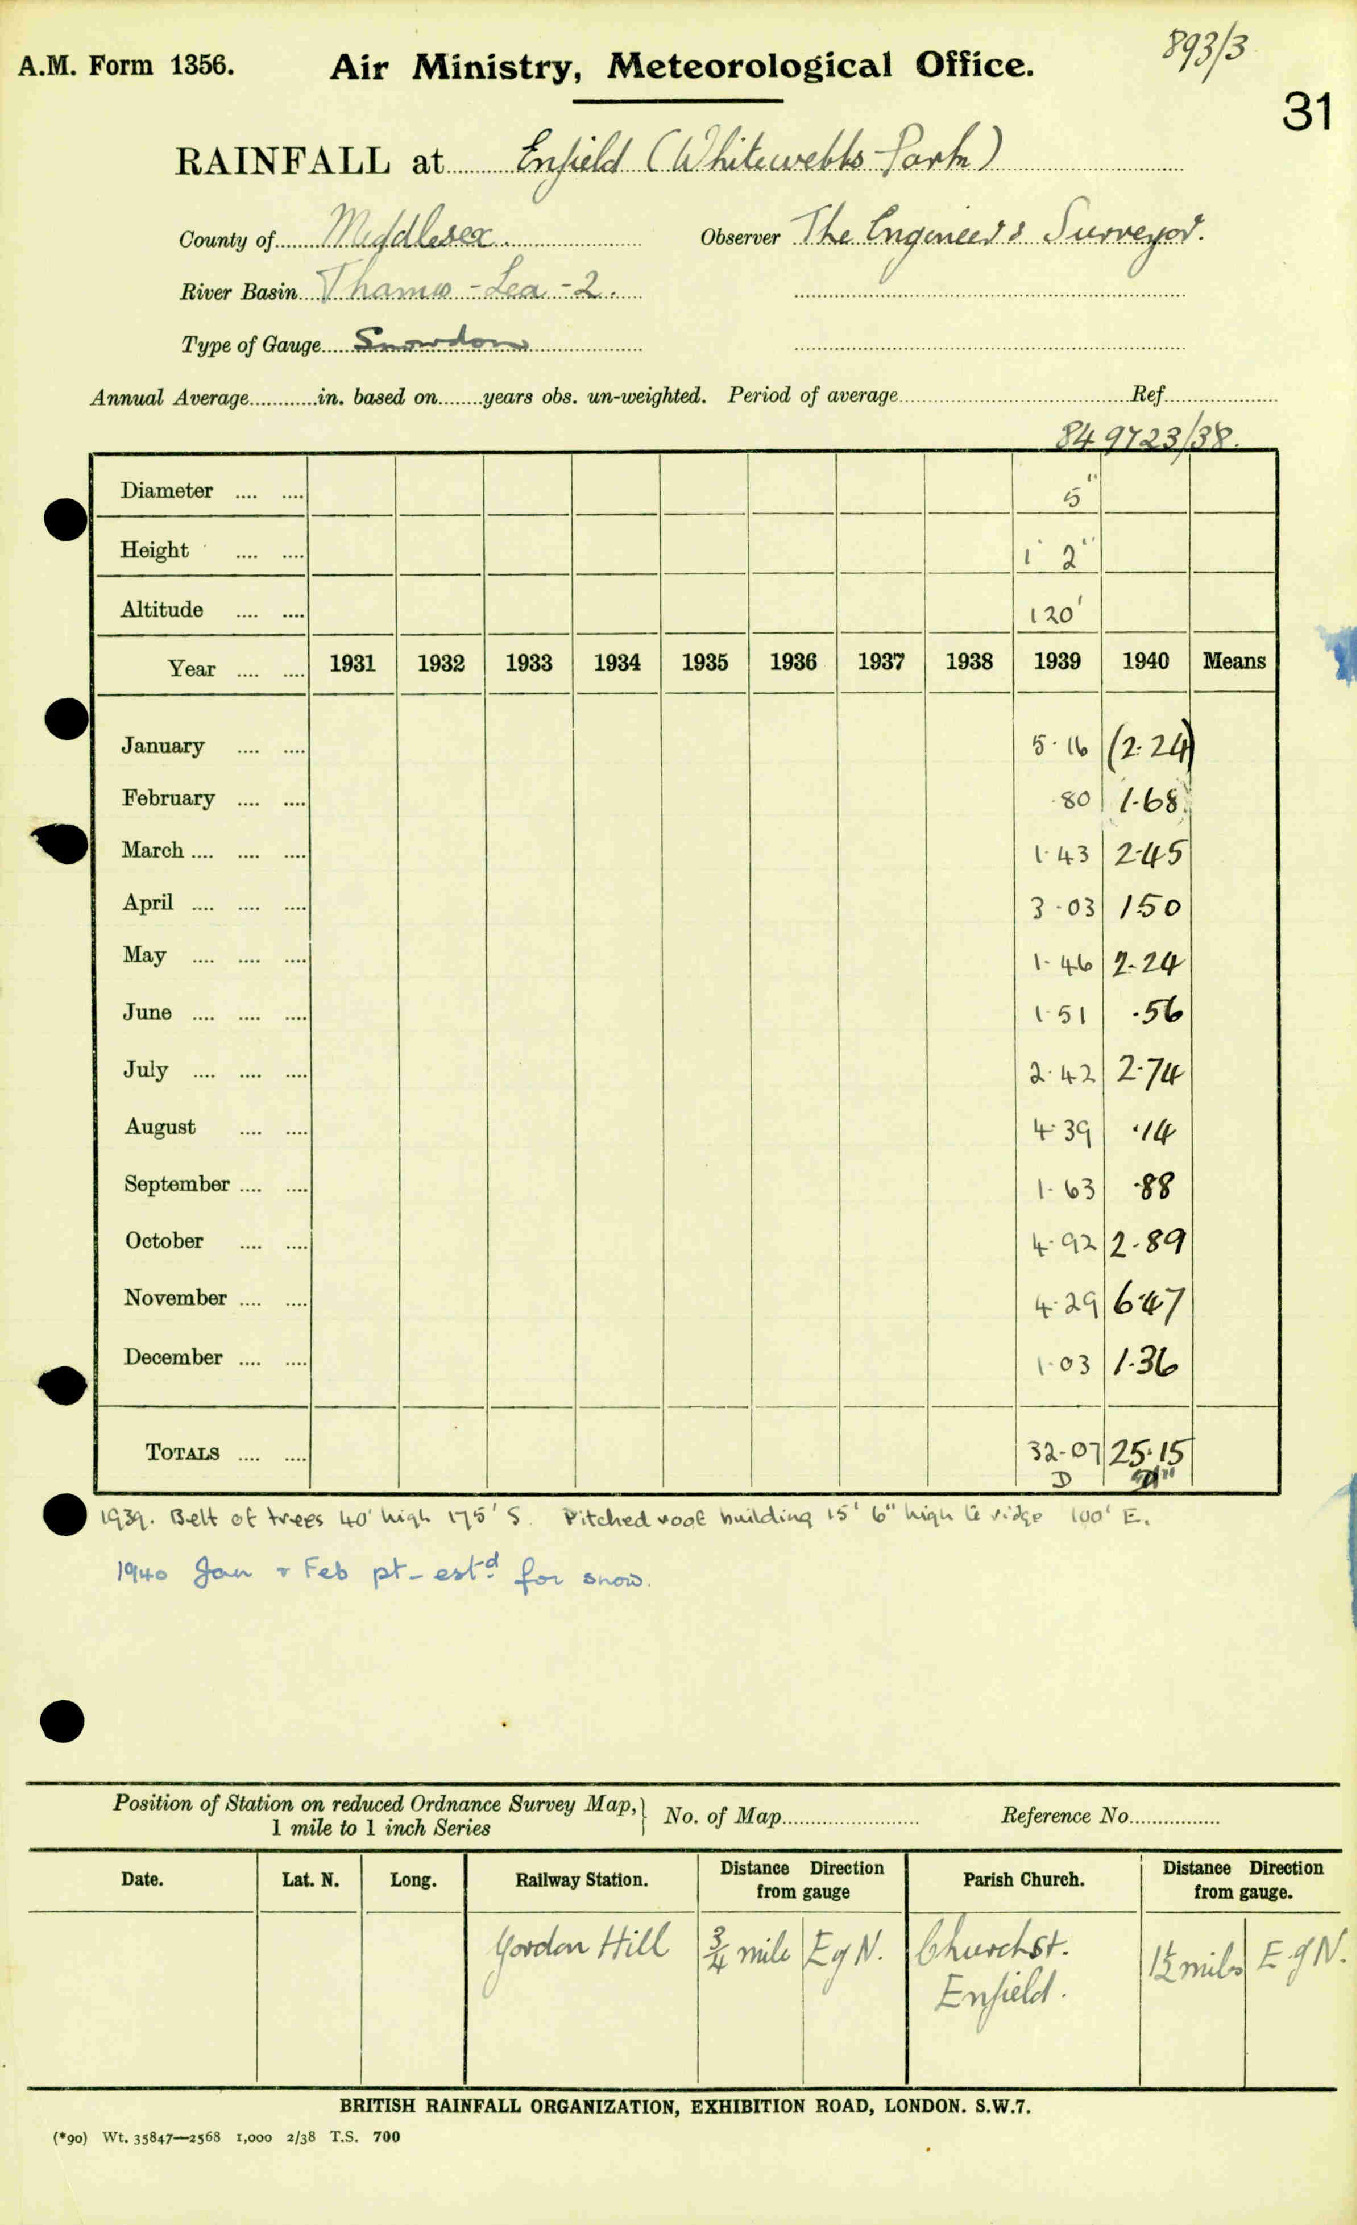 893/3
A.M. Form 1356. Air Ministry, Meteorological Office.
31
RAINFALL at Enfield (Whitewebbs Park)
County of Middlesex. Observer The Engineer & Surveyor.
River Basin Thames - Lea - 2.
Type of Gauge Snowdon
Annual Average............in. based on........years obs. un-weighted. Period of average............Ref............
849723/38.
Diameter .... .... 5"
Height .... .... 1' 2"
Altitude .... .... 120'
Year .... .... 1931 1932 1933 1934 1935 1936 1937 1938 1939 1940 Means
January .... .... 5.16 (2.24)
February .... .... .80 1.68
March .... .... .... 1.43 2.45
April .... .... .... 3.03 1.50
May .... .... .... 1.46 2.24
June .... .... .... 1.51 .56
July .... .... .... 2.42 2.74
August .... .... 4.39 .14
September .... .... 1.63 .88
October .... .... 4.92 2.89
November .... .... 4.29 6.47
December .... .... 1.03 1.36
TOTALS .... .... 32.07 25.15
D
1939. Belt of trees 40' high 175' S. Pitched roof building 15' 6" high to ridge 100' E.
1940 Jan & Feb pt-estd for snow.
Position of Station on reduced Ordnance Survey Map, } No. of Map............ Reference No............
1 mile to 1 inch Series
Date. Lat. N. Long. Railway Station. Distance Direction from gauge Parish Church. Distance Direction from gauge.
Gordon Hill 3/4 mile E of N. Church St. 1½ miles E of N.
Enfield.
BRITISH RAINFALL ORGANIZATION, EXHIBITION ROAD, LONDON. S.W.7.
(*90) Wt. 35847—2568 1,000 2/38 T.S. 700